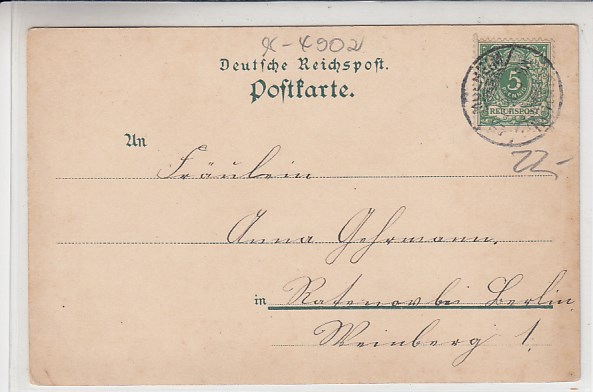 X-4902
Deutsche Reichspost.
Postkarte.
5
REICHSPOST
22,-
An
Fräulein
Anna Gehrmann.
in Ratenov bei Berlin
Weinberg 1.